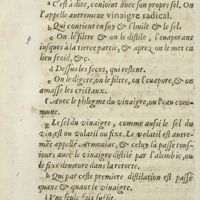 C'est à dire, conioint auec son propre sel. On
l'appelle autrement vinaigre radical.
b Qui contient en soy & l'huile & le sel.
c On le filtre & on le distile, l'euaporant
iusques à la tierce partie, & aprez on le met en
lieu froid, &c.
d Dessus les feces, qui restent.
e On le digere, on le filtre, on l'euapore, & on
amasse les cristaux.
f Auec le phlegme du vinaigre, ou l'eau com-
mune.
g Le sel du vinaigre, comme aussi le sel du
vin est ou volatil ou fixe. Le volatil est autre-
mēt appellé Armoniac, & celuy là passe tous-
iours auec le vinaigre distilé par l'alembic, ou
le fixe demeure dans la retorte.
h Qui par ceste premiere distilation est passé
quant & quant le vinaigre.
i Vne seule fois suffit.